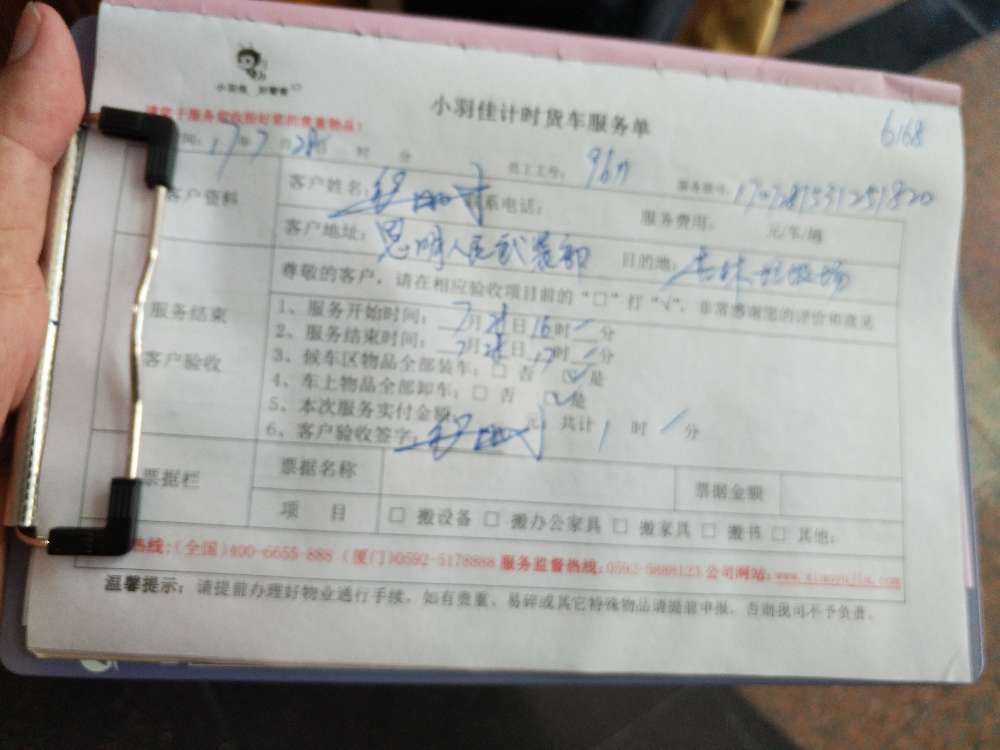 小羽佳 好管家
小羽佳计时货车服务单
6168
请您于服务前收拾好您的贵重物品!
时间: 17年7月28日 时 分 员工工号: 服务单号:
客户资料
客户姓名: 联系电话: 服务费用: 元/车/趟
客户地址: 思明人民武装部 目的地:
尊敬的客户,请在相应验收项目前的“□”打“√”,非常感谢您的评价和意见
服务结束
客户验收
1、服务开始时间: 7月28日16时 分
2、服务结束时间: 7月28日17时 分
3、候车区物品全部装车: □ 否 ☑是
4、车上物品全部卸车: □ 否 ☑是
5、本次服务实付金额: 元; 共计1 时 分
6、客户验收签字:
票据栏
票据名称 票据金额
项 目 □ 搬设备 □ 搬办公家具 □ 搬家具 □ 搬书 □ 其他:
热线:(全国)400-6655-888 (厦门)0592-5178888 服务监督热线:0592-5888123 公司网站:www.xiaoyujia.com
温馨提示: 请提前办理好物业通行手续。如有贵重、易碎或其它特殊物品请提前申报,否则我司不予负责。